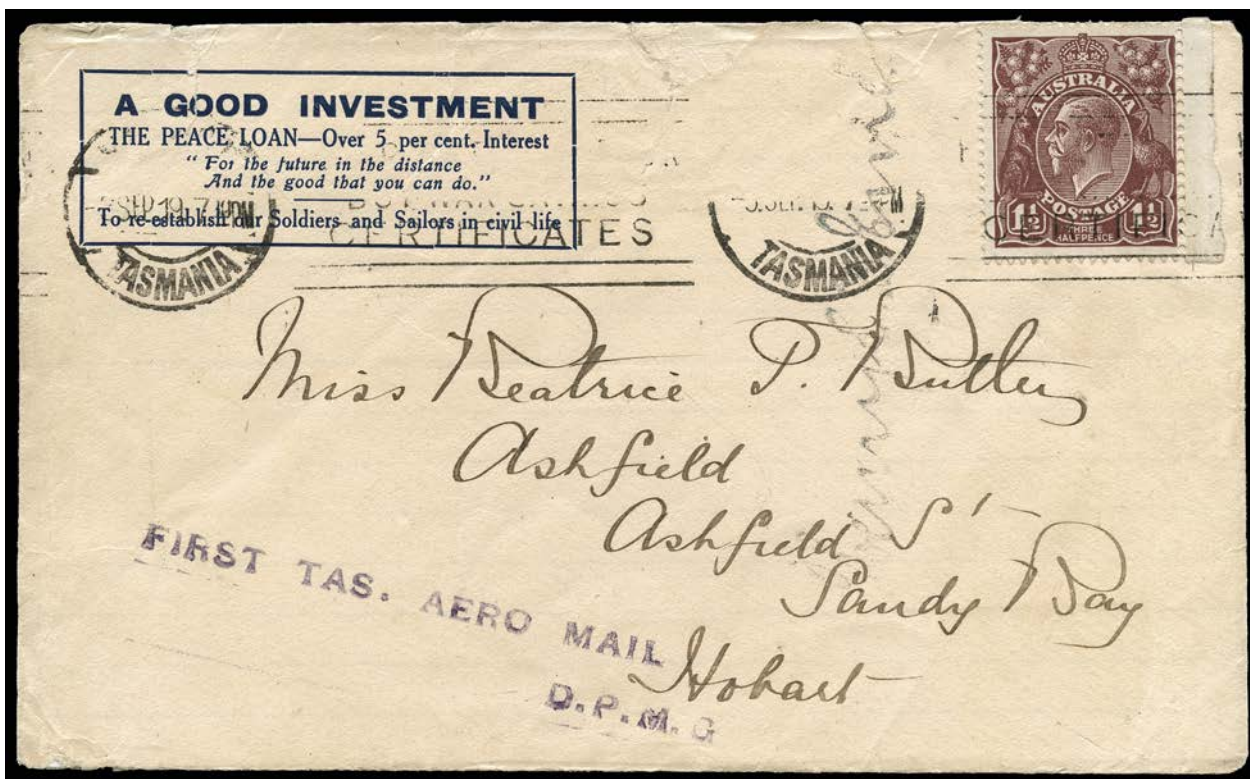 A GOOD INVESTMENT
THE PEACE LOAN—Over 5 per cent. Interest
"For the future in the distance
And the good that you can do."
To re-establish our Soldiers and Sailors in civil life
CERTIFICATES
TASMANIA
TASMANIA
AUSTRALIA
POSTAGE
1½D 1½D
THREE
HALFPENCE
Miss Beatrice P. Butler
Ashfield
Ashfield St
Sandy Bay
Hobart
FIRST TAS. AERO MAIL
D.P.M.G